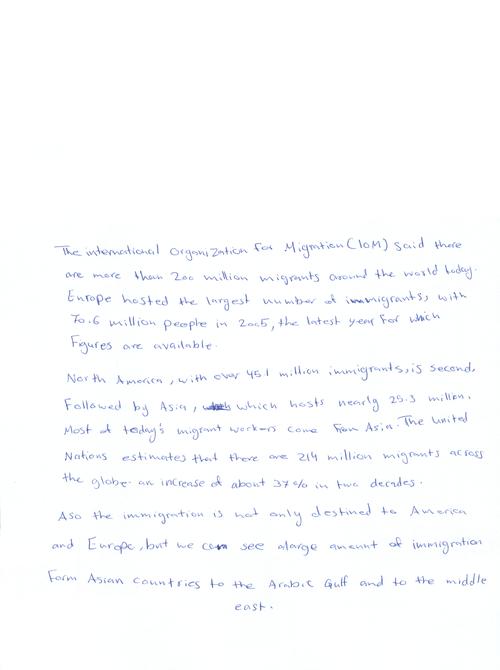 The international Organization For Migration (IOM) Said there
are more than 200 million migrants around the world today.
Europe hosted the largest number of immigrants, with
70.6 million people in 2005, the latest year For which
Figures are available.
North America, with over 45.1 million immigrants, is second,
Followed by Asia, which hosts nearly 25.3 million.
Most of today's migrant workers come From Asia. The United
Nations estimates that there are 214 million migrants across
the globe. an increase of about 37% in two decades.
Aso the immigration is not only destined to America
and Europe, but we can see alarge amount of immigration
Form Asian countries to the Arabic Gulf and to the middle
east.